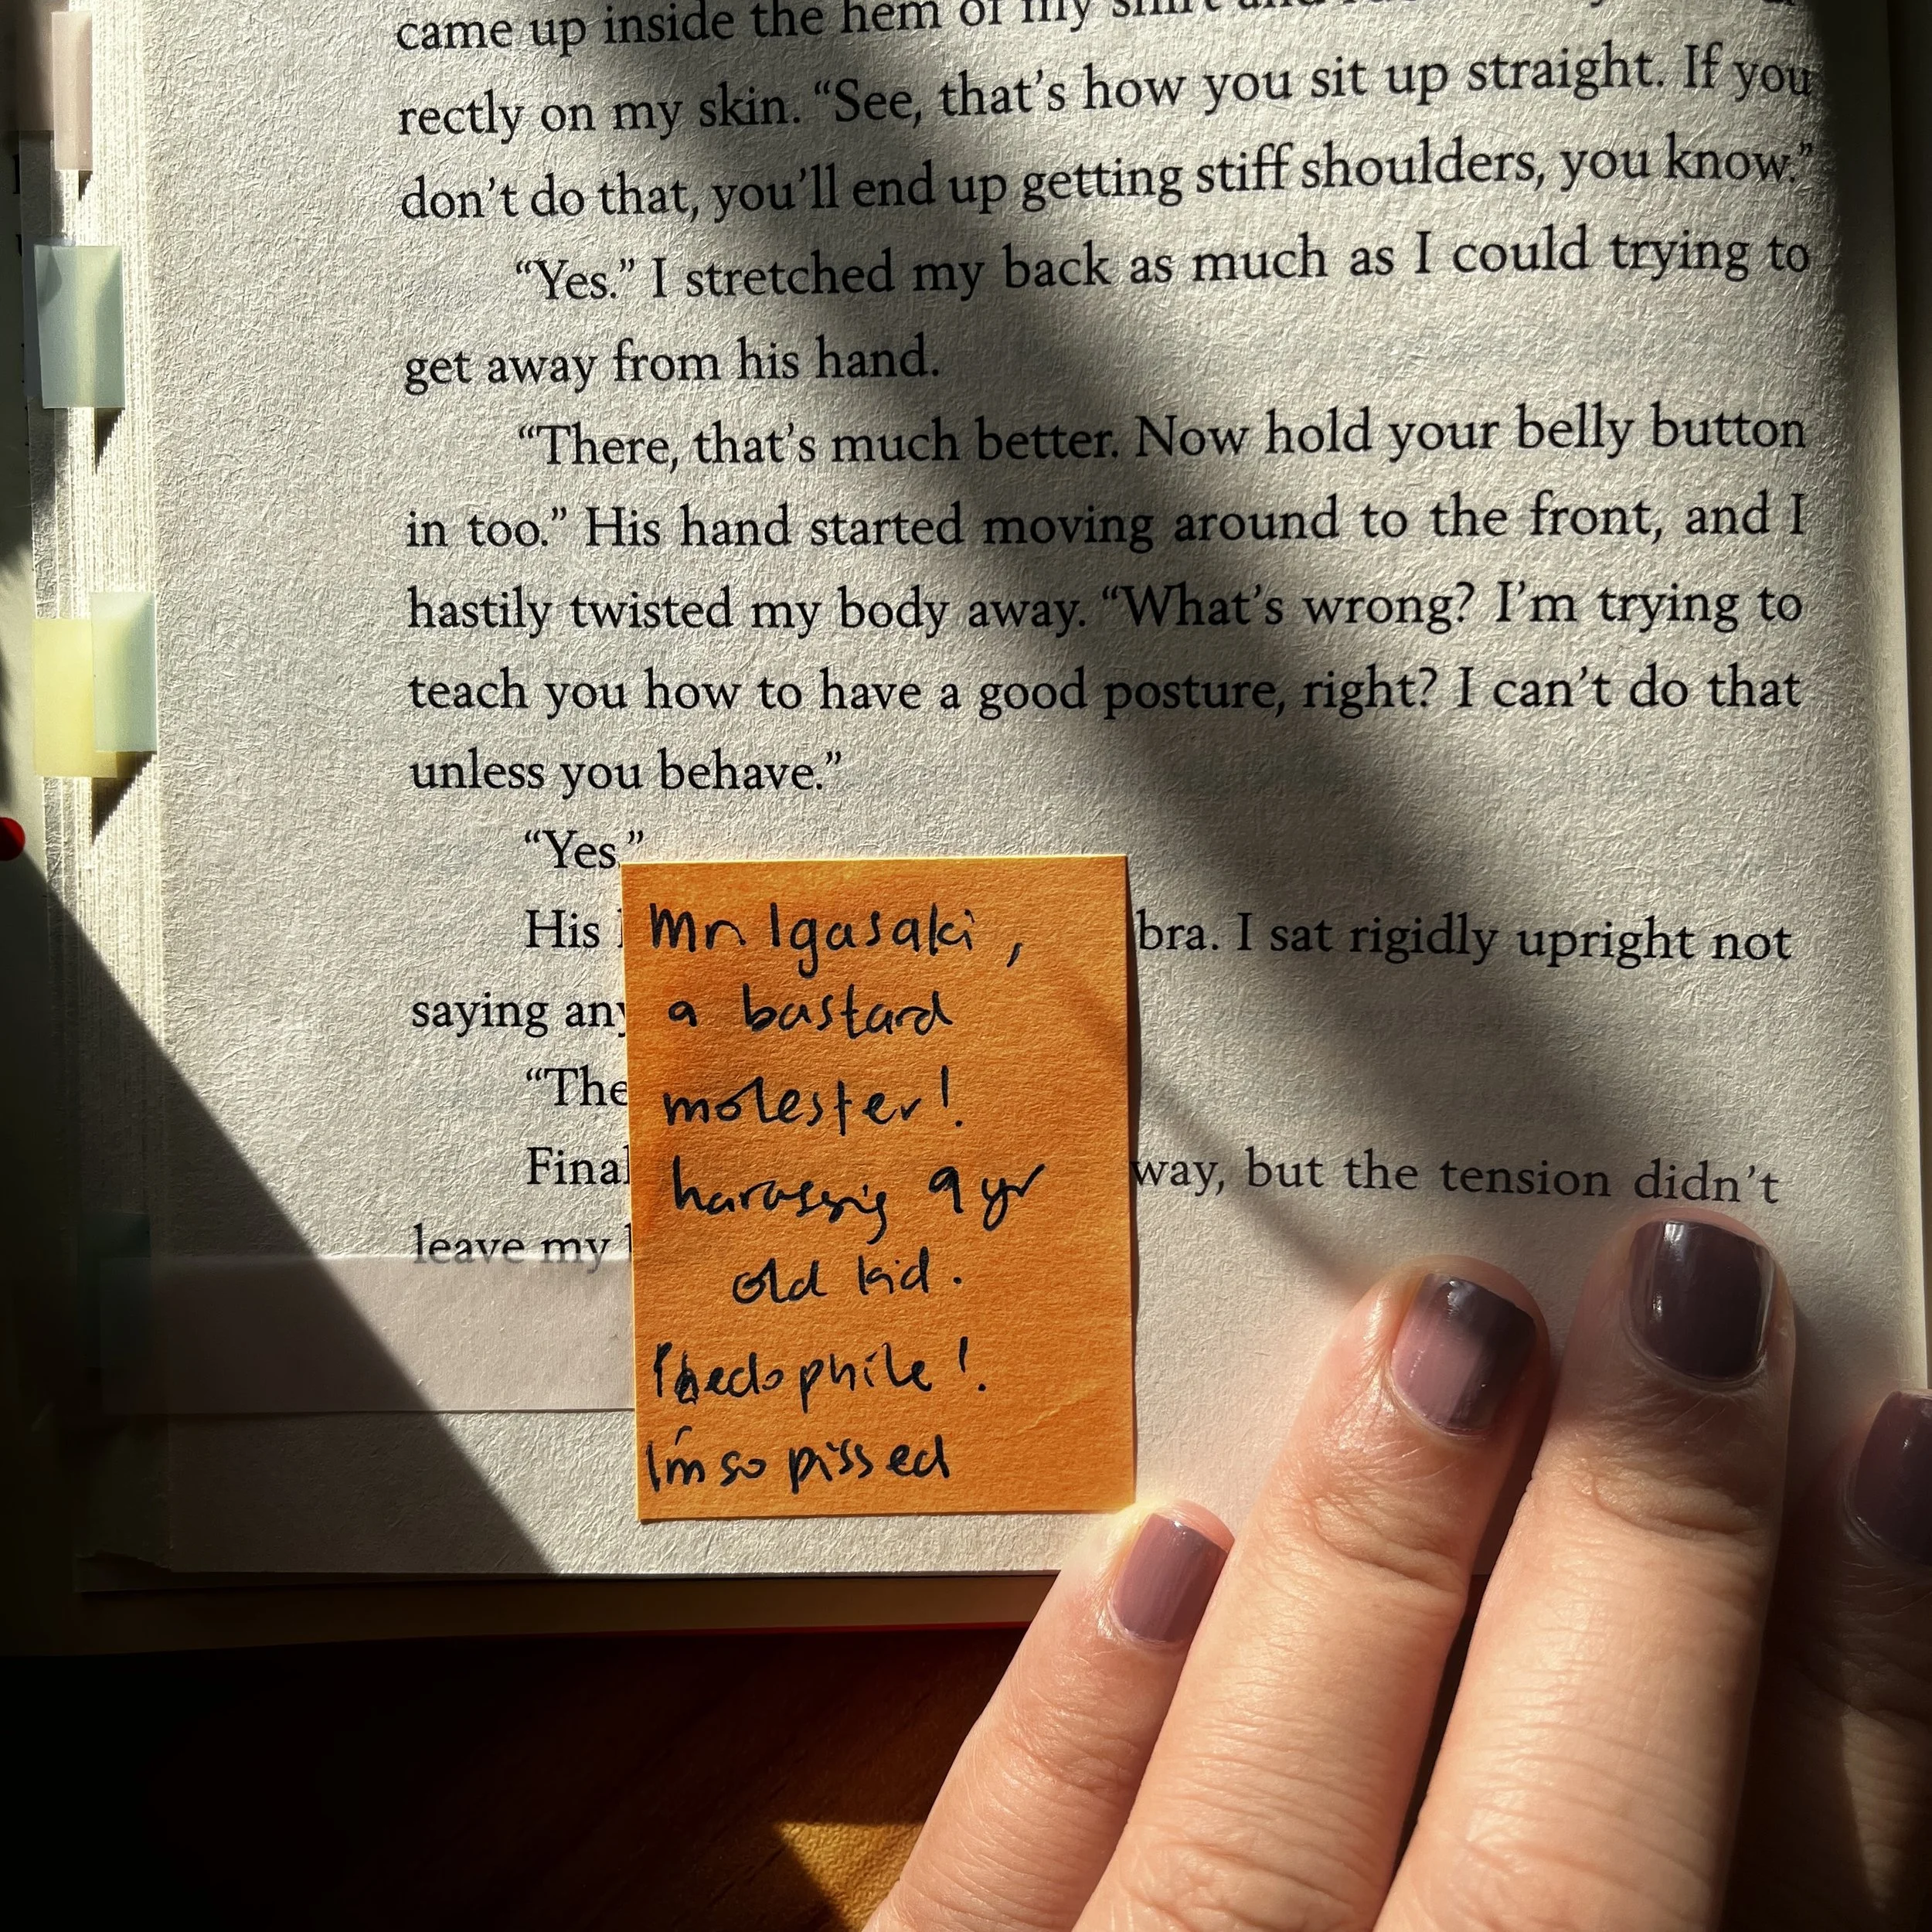 came up inside the hem of my shirt and
rectly on my skin. “See, that’s how you sit up straight. If you
don’t do that, you’ll end up getting stiff shoulders, you know.”
“Yes.” I stretched my back as much as I could trying to
get away from his hand.
“There, that’s much better. Now hold your belly button
in too.” His hand started moving around to the front, and I
hastily twisted my body away. “What’s wrong? I’m trying to
teach you how to have a good posture, right? I can’t do that
unless you behave.”
“Yes.”
His bra. I sat rigidly upright not
saying
“The
Final way, but the tension didn’t
leave my
Mr Igasaki,
a bastard
molester!
harassing 9 yr
old kid.
Phedophile!
I'm so pissed